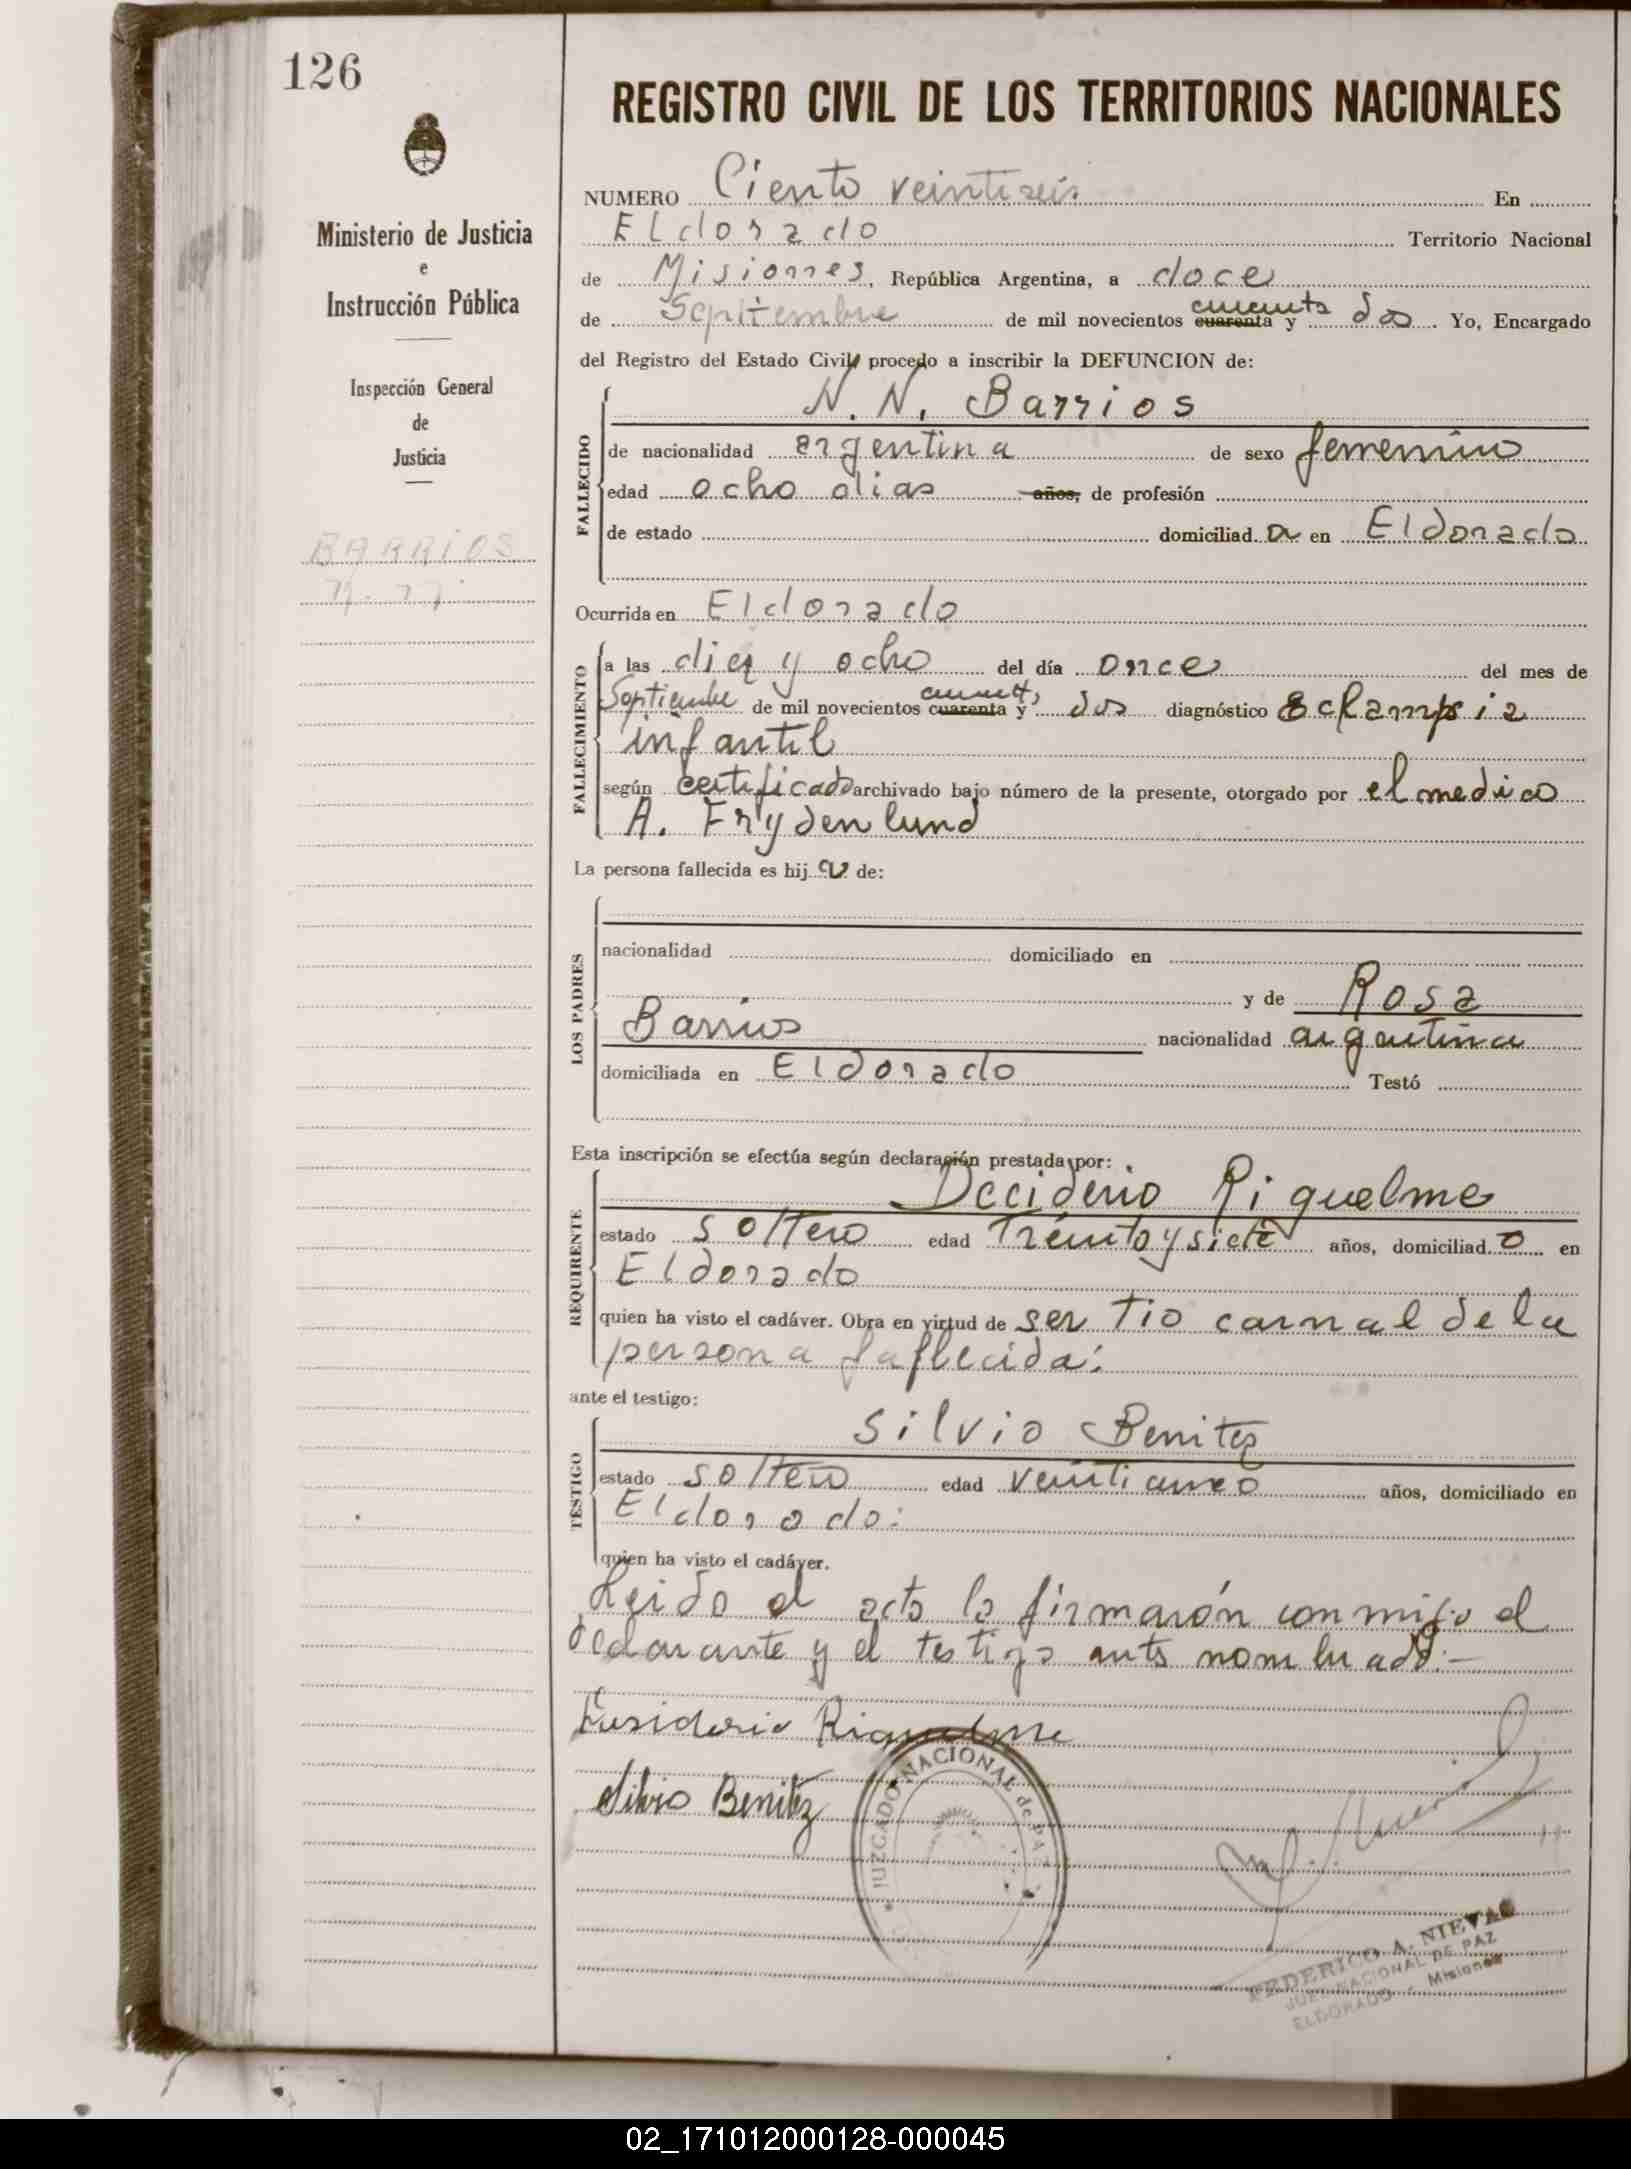 126
Ministerio de Justicia
e
Instrucción Pública
Inspección General
de
Justicia
BARRIOS
N. N.
REGISTRO CIVIL DE LOS TERRITORIOS NACIONALES
NUMERO Ciento veintiseis En
Eldorado Territorio Nacional
de Misiones, República Argentina, a doce
de Septiembre de mil novecientos cuarenta y cincuenta dos. Yo, Encargado
del Registro del Estado Civil, procedo a inscribir la DEFUNCION de:
FALLECIDO
N. N. Barrios
de nacionalidad argentina de sexo femenino
edad ocho dias años, de profesión
de estado domiciliad a en Eldorado
Ocurrida en Eldorado
FALLECIMIENTO
a las diez y ocho del día once del mes de
Septiembre de mil novecientos cuarenta y dos diagnóstico Eclampsia
infantil
según certificado archivado bajo número de la presente, otorgado por el medico
A. Frydenlund
La persona fallecida es hij a de:
LOS PADRES
nacionalidad domiciliado en
y de Rosa
Barrios nacionalidad argentina
domiciliada en Eldorado Testó
Esta inscripción se efectúa según declaración prestada por:
REQUIRENTE
Deciderio Riquelme
estado soltero edad Treinta y siete años, domiciliad o en
Eldorado
quien ha visto el cadáver. Obra en virtud de ser Tio carnal de la
persona fallecida:
ante el testigo:
TESTIGO
Silvio Benitez
estado soltero edad veinticinco años, domiciliado en
Eldorado:
quien ha visto el cadáver.
Leido el acta la firmarón conmigo el
declarante y el testigo antes nombrado.-
Riquelme
Silvio Benitez
JUZGADO NACIONAL de PAZ
FEDERICO A. NIEVAS
JUEZ NACIONAL DE PAZ
ELDORADO - Misiones
02_171012000128-000045